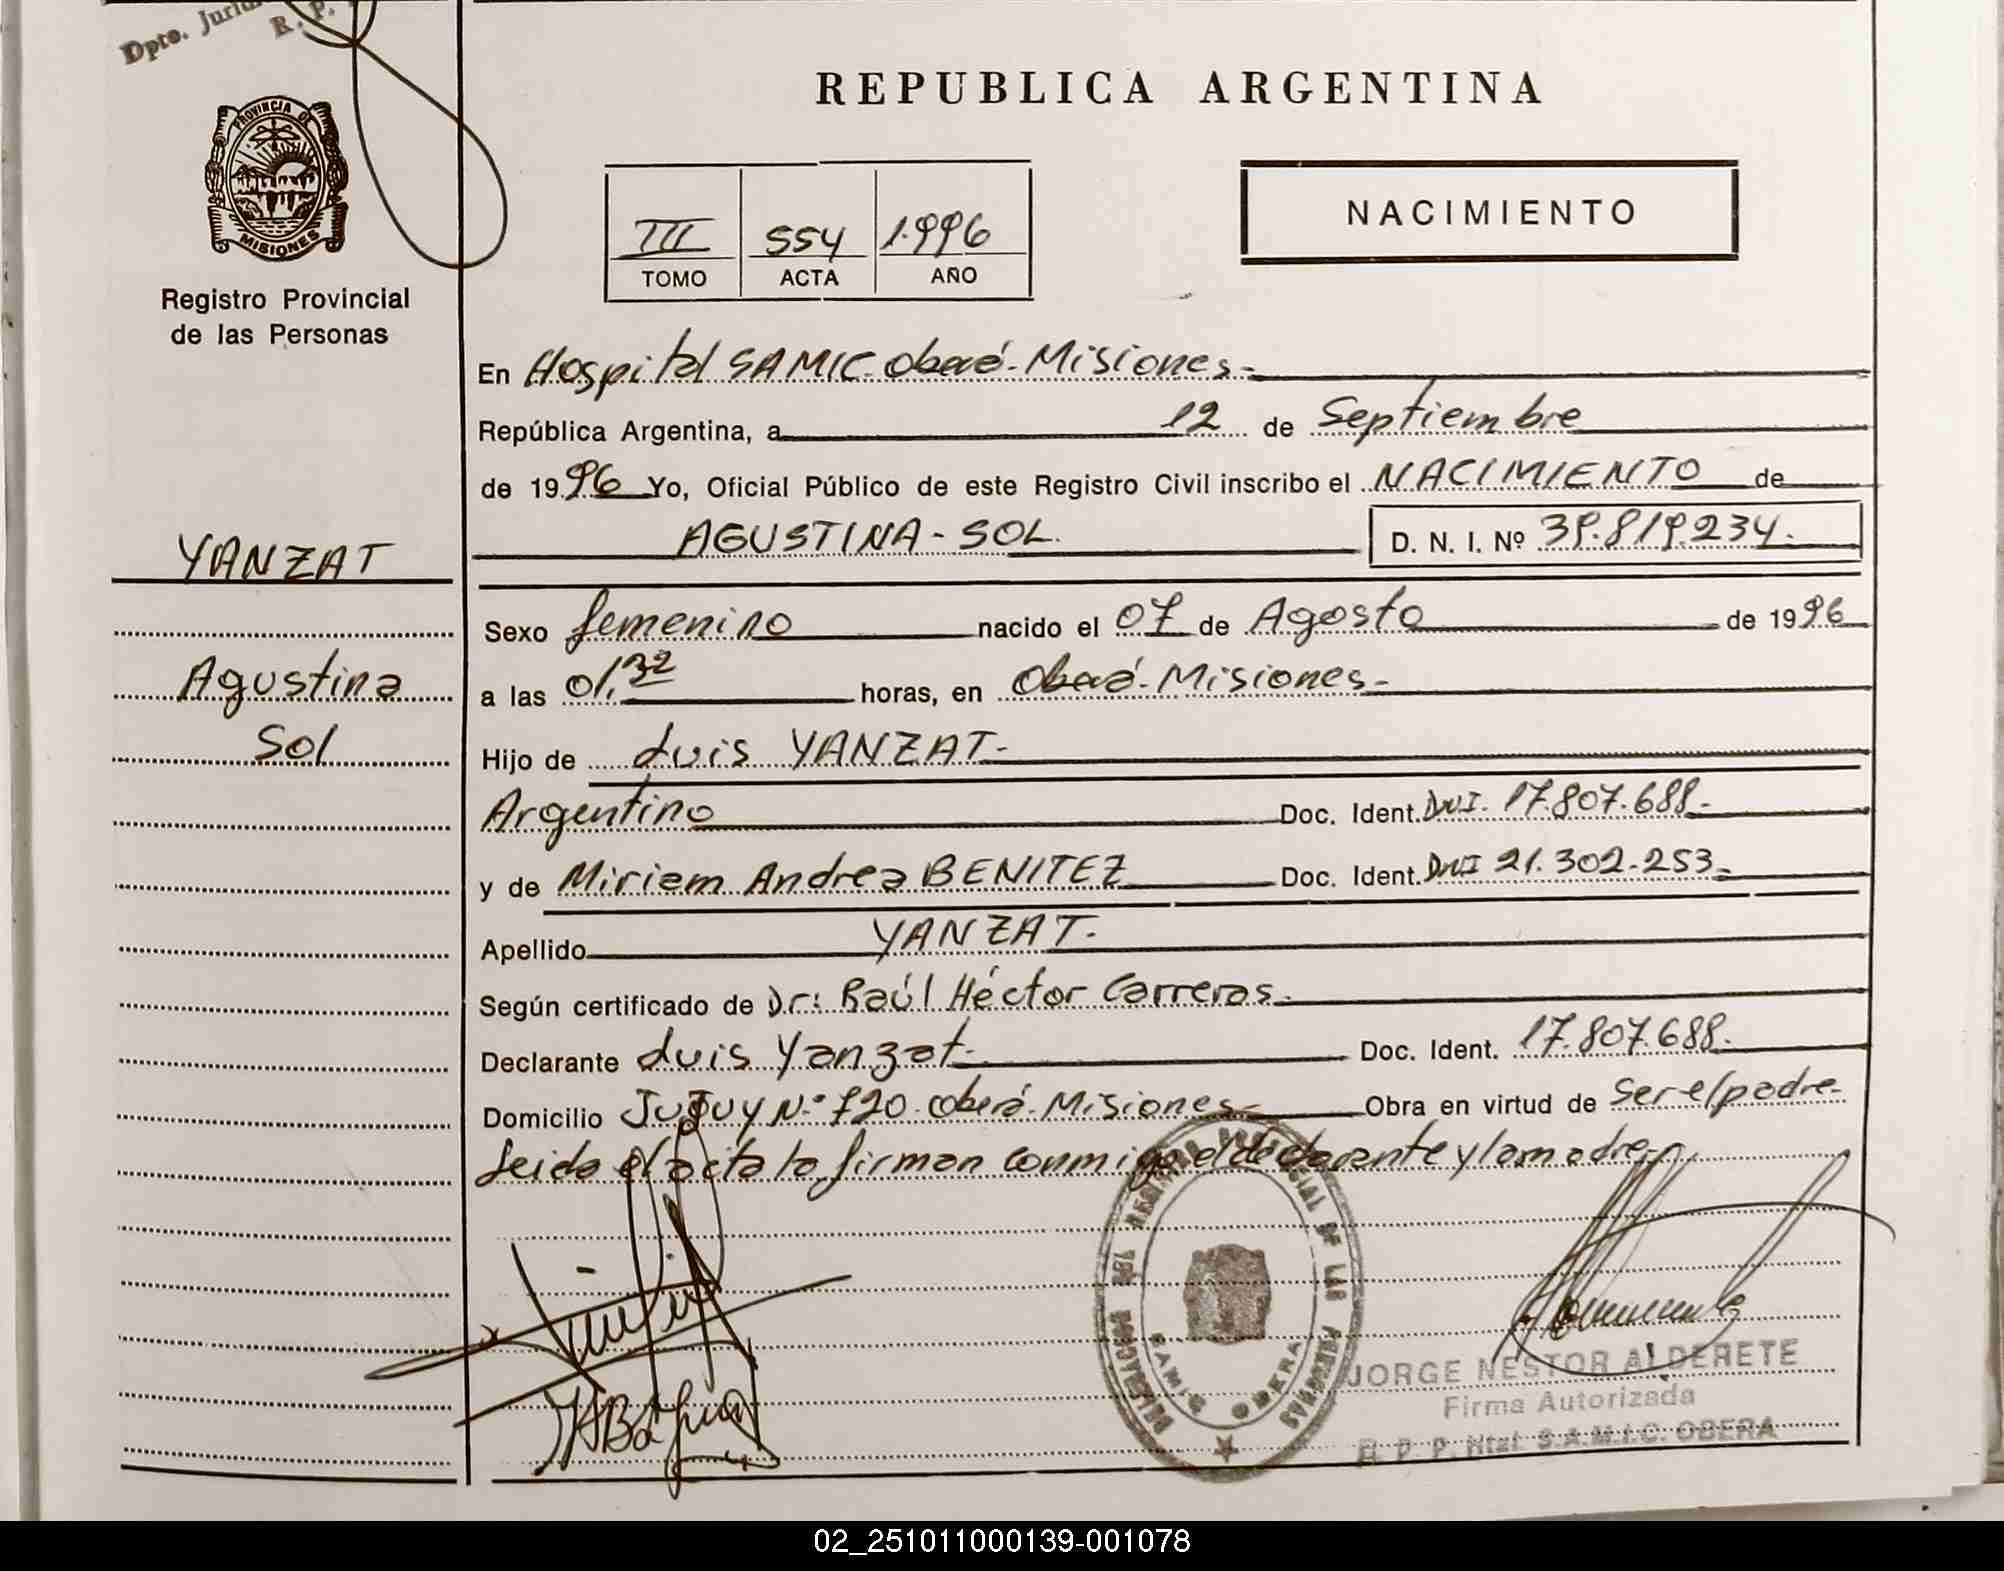 Dpto.
R. P.
REPUBLICA ARGENTINA
PROVINCIA DE
MISIONES
Registro Provincial
de las Personas
III 554 1.996
TOMO ACTA AÑO
NACIMIENTO
En Hospital SAMIC. Oberá - Misiones.-
República Argentina, a 12 de Septiembre
de 1996 Yo, Oficial Público de este Registro Civil inscribo el NACIMIENTO de
AGUSTINA - SOL. D. N. I. Nº 39.819.234.
YANZAT
Agustina
Sol
Sexo femenino nacido el 07 de Agosto de 1996
a las 01,32 horas, en Oberá - Misiones.-
Hijo de Luis YANZAT.-
Argentino Doc. Ident. DNI. 17.807.688.-
y de Miriam Andrea BENITEZ Doc. Ident. DNI 21.302.253.-
Apellido YANZAT.-
Según certificado de Dr: Raúl Héctor Carreras.-
Declarante Luis Yanzat.- Doc. Ident. 17.807.688.-
Domicilio Jujuy N.° 720. Oberá. Misiones.- Obra en virtud de ser el padre.-
Leida el acta la firman conmigo el declarante y la madre.
REGISTRO PROVINCIAL DE LAS PERSONAS
DELEGACION
SAMIC OBERA
JORGE NESTOR ALDERETE
Firma Autorizada
R. P. P. Htal. S.A.M.I.C. OBERA
02_251011000139-001078